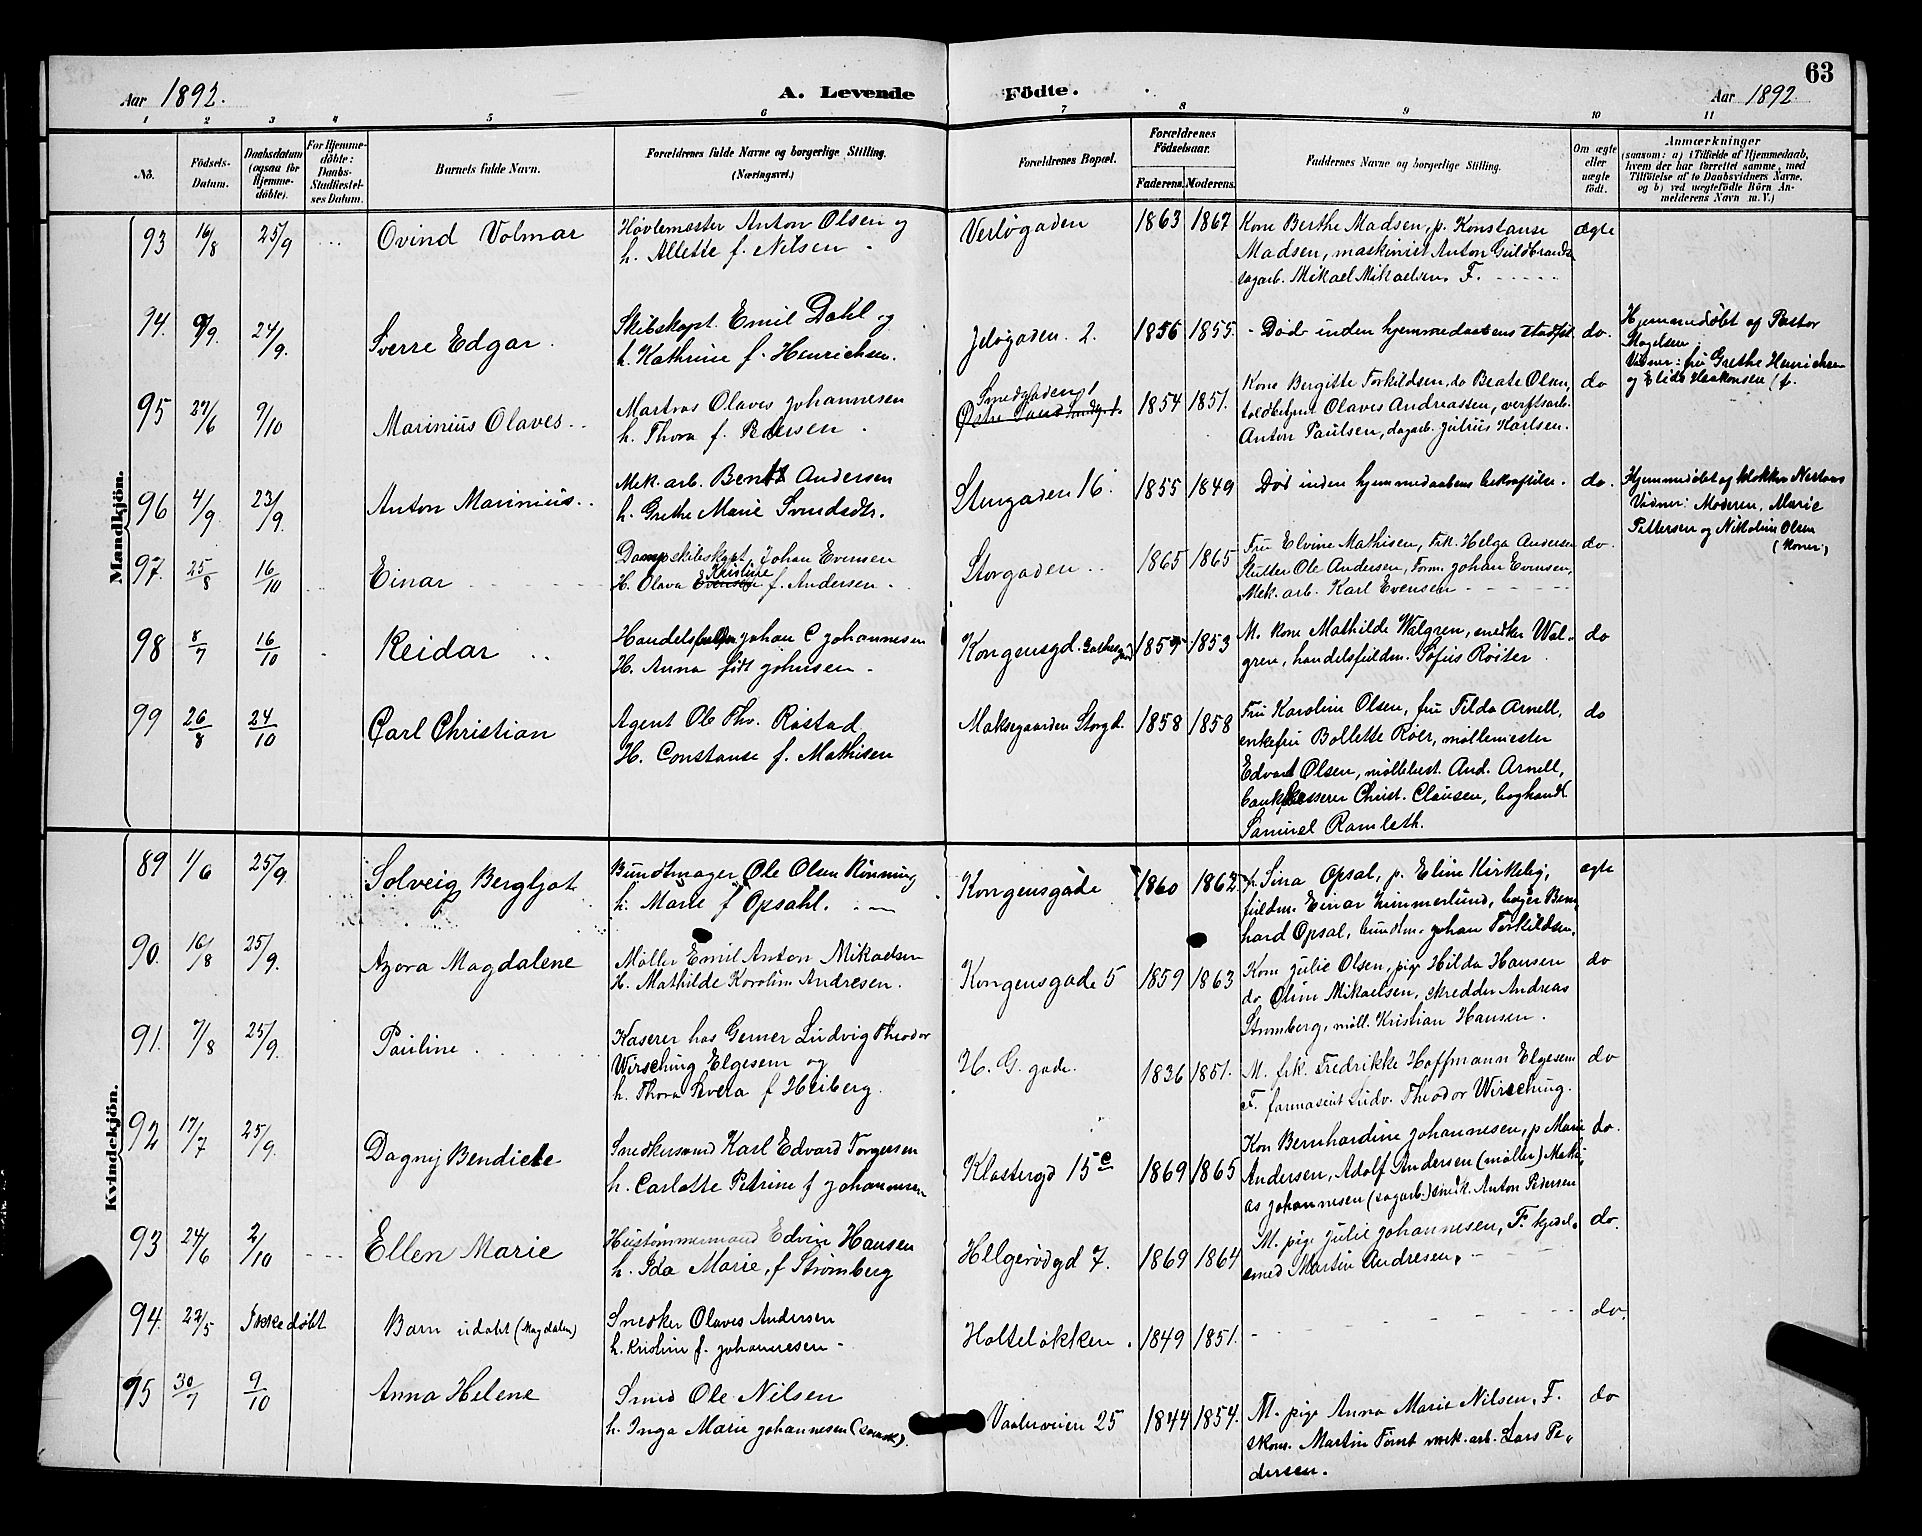 63
Aar 1892.
A. Levende
Födte.
Aar 1892.
1 2 3 4 5 6 7 8 9 10 11
No.
Födsels-Datum.
Daabsdatum (ogsaa for Hjemme-döbte).
For Hjemme-döbte: Daabs-Stadfæstel-ses Datum.
Barnets fulde Navn.
Forældrenes fulde Navne og borgerlige Stilling.
(Næringsvei.)
Forældrenes Bopæl.
Forældrenes Födselsaar.
Faderens. Moderens.
Faddernes Navne og borgerlige Stilling.
Om ægte eller uægte födt.
Anmærkninger
(saasom: a) i Tilfælde af Hjemmedaab,
hvem der har forrettet samme, med
Tilföielse af to Daabsvidners Navne,
og b) ved uægtefödte Börn An-
melderens Navn m. V.)
Mandkjön.
93 16/8 25/9 ... Ovind Volmar
Høvlemester Anton Olsen og
h. Allette f. Nilsen
Verløgaden 1863 1867
Kone Berthe Madsen, p. Konstanse
Madsen, maskinist Anton Guldbrands
sagarb. Mikael Mikaelsen. F.
ægte
94. 9/9. 24/9. Sverre Edgar.
Skibskapt. Emil Dahl og
h. Kathrine f. Henrichsen.
Jeløgaden. 2. 1856 1855.
- Død inden hjemmedaabens stadfst. do.
Hjemmedøbt af Pastor
Vidner: fru Grethe Henrichsen
og Elida Haakonsen (f.
95 27/6 9/10 Marinius Olaves..
Martros Olaves Johannesen
h. Thora f. Pedersen
Smedgadengt 1854 1851.
Kone Bergitte Torkildsen, do Beate Olsen,
toldbetjent Olaves Andreassen, verftsarb.
Anton Paulsen, dagarb. Julius Karlsen.
do
96 4/9. 23/9. Anton Marinius..
Mek. arb. Bent Andersen
h. Grethe Marie Svendsdtr.
Stengaden 16. 1855 1849
Død inden hjemmedaabens bekræftelse. do.
Hjemmedøbt af klokker
Vidner: Moderen, Marie
Pettersen og Nikoline Olsen
(koner)
97. 25/8 16/10 Einar
Dampskibskapt. Johan Evensen
H. Olava Evensen Kristine f. Andersen.
Storgaden.. 1865 1865
Fru Elvine Mathisen, Frk. Helga Andersen
Slutter Ole Andersen, Form. Johan Evensen,
Mek. arb. Karl Evensen
do.
98 8/7 16/10 Reidar ..
Handelsfuldm Johan C Johannesen
H. Anna født Johnsen.
Kongensgd. 1857 1853
M. kone Mathilde Walgren, snedker Wal-
gren, handelsfuldm. Sofus Røiter
do
99 26/8 24/10 Carl Christian
Agent Ole Thv. Røstad
H. Constanse f. Mathisen
Maksegaarden Storgd. 1858 1858
Fru Karoline Olsen, fru Tilda Arnell,
enkefru Bollette Roer, møllemester
Edvard Olsen, møllebest. And. Arnell,
bankkasserer Christ. Clausen, boghandl
Samuel Ramleth.
do
Kvindekjön.
89 1/6 25/9. Solveig Bergljot
Bundtmager Ole Olsen Rønning
h. Marie f Opsahl.
Kongensgade 1860 1862
p. Sina Opsal, p. Eline Kirkelig,
fuldm. Einar Zimmerlund, bager Bern-
hard Opsal, bundtm. Johan Torkildsen.
ægte
90. 16/8 25/9. Azora Magdalene
Møller Emil Anton Mikaelsen
H. Mathilde Karoline Andresen.
Kongensgade 5 1859 1863
Kone Julie Olsen, pige Hilda Hansen
do Oline Mikaelsen, skredder Andreas
Strømberg, møll. Kristian Hansen.
do
91. 7/8 25/9. Pauline
Kaserer hos Gerner Ludvig Theodor
Wirsching Elgesem og
h. Thora Severa f Heiberg.
H. G. gade. 1836 1851.
M. frk. Fredrikke Hoffmann Elgesem
F. farmaseut Ludv. Theodor Wirsching.
do
92 17/7 25/9. Dagny Bendicte
Snedkersvend Karl Edvard Torgersen
h. Carlotte Petrine f Johannesen
Klostergd 15c 1869 1865
Kon Bernhardine Johannesen, p Marie
Andersen, Adolf Andersen (møller) Mathi-
as Johannesen (sagarb.) snedk. Anton Pedersen
do.
93 24/6 2/10 Ellen Marie
Hustømmermand Edvin Hansen
h. Ida Marie, f Strømberg
Helgerødgd 7. 1869 1864
M. pige Julie Johannesen, F. kjedel-
smed Martin Andresen.
do.
94. 22/5 Ikke døbt Barn udøbt (Magdalen)
Snedker Olaves Andersen
h. Kristine f. Johannesen
Holteløkken. 1849 1851.
do.
95 30/7 9/10 Anna Helene
Smed Ole Nilsen
h. Inga Marie Johannesen (svensk).
Vaalerveien 25 1844 1854.
M. pige Anna Marie Nilsen. F.
skom. Martin Tomt mek. arb. Lars Pe-
dersen.
do